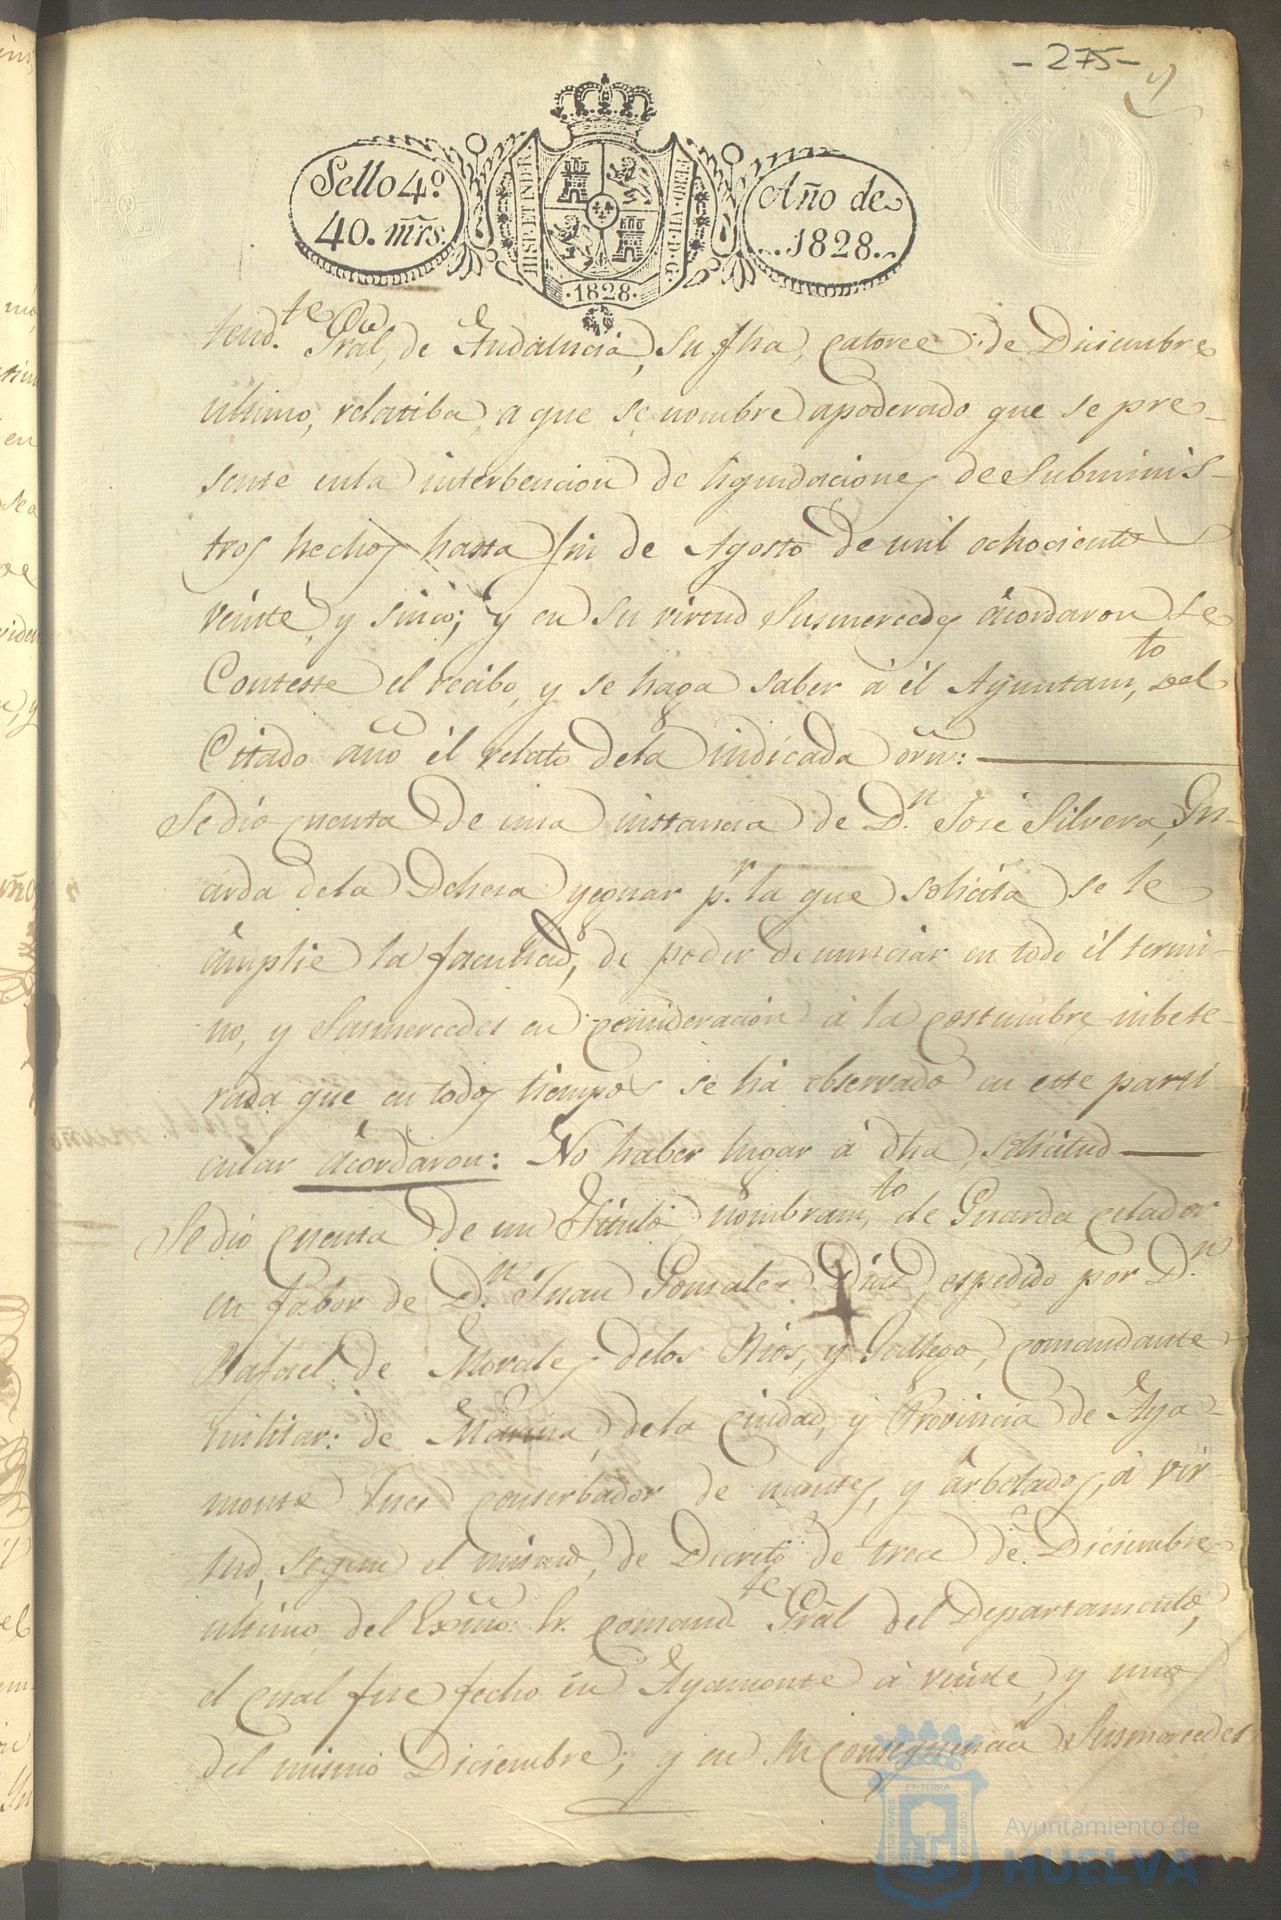 - 275 -
Sello 4º
40. mrs.
HISP. ET IND. R.
FERD. VII. D. G.
·1828·
Año de
1828.
tend.te Gral, de Andalucia, su fha, catorce de Diciembre
ultimo, relatiba, a que se nombre apoderado que se pre-
sente enla interbencion de liquidaciones de Subminis-
tros hechos hasta fin de Agosto de mil ochocientos
veinte, y sinco; y en su virtud Susmercedes acordaron se
Conteste el recibo, y se haga saber á él Ayuntam.to del
Citado año él relato dela indicada orn:
Se dio cuenta de una instancia de D.n José Silvera, Gu-
arda dela Dehesa yeguar p.r la que solicita se le
ámplie la facultad, de poder denunciar en todo él termi-
no, y Susmercedes en concideracion á la costumbre inbete-
rada que en todos tiempos se há observado en este parti-
cular ácordaron: No haber lugar á dha, solicitud
Se dio cuenta de un Titulo nombram.to de Guarda celador
en fabor de D.n Juan Gonsalez Dias, espedido por D.n
Rafael de Morales delos Rios, y Gallego, comandante
militar: de Marina, dela Ciudad, y Provincia de Aya-
monte Jues conserbador de montes, y árbolados, á vir-
tud, segun el mismo, de Decreto de trece de Diciembre
ultimo del Exmo. Sr. Comand.te Gral del Departamento,
el cual fue fecho en Ayamonte á veinte, y uno
del mismo Diciembre; y en su consequencia Susmercedes
Ayuntamiento de
HUELVA